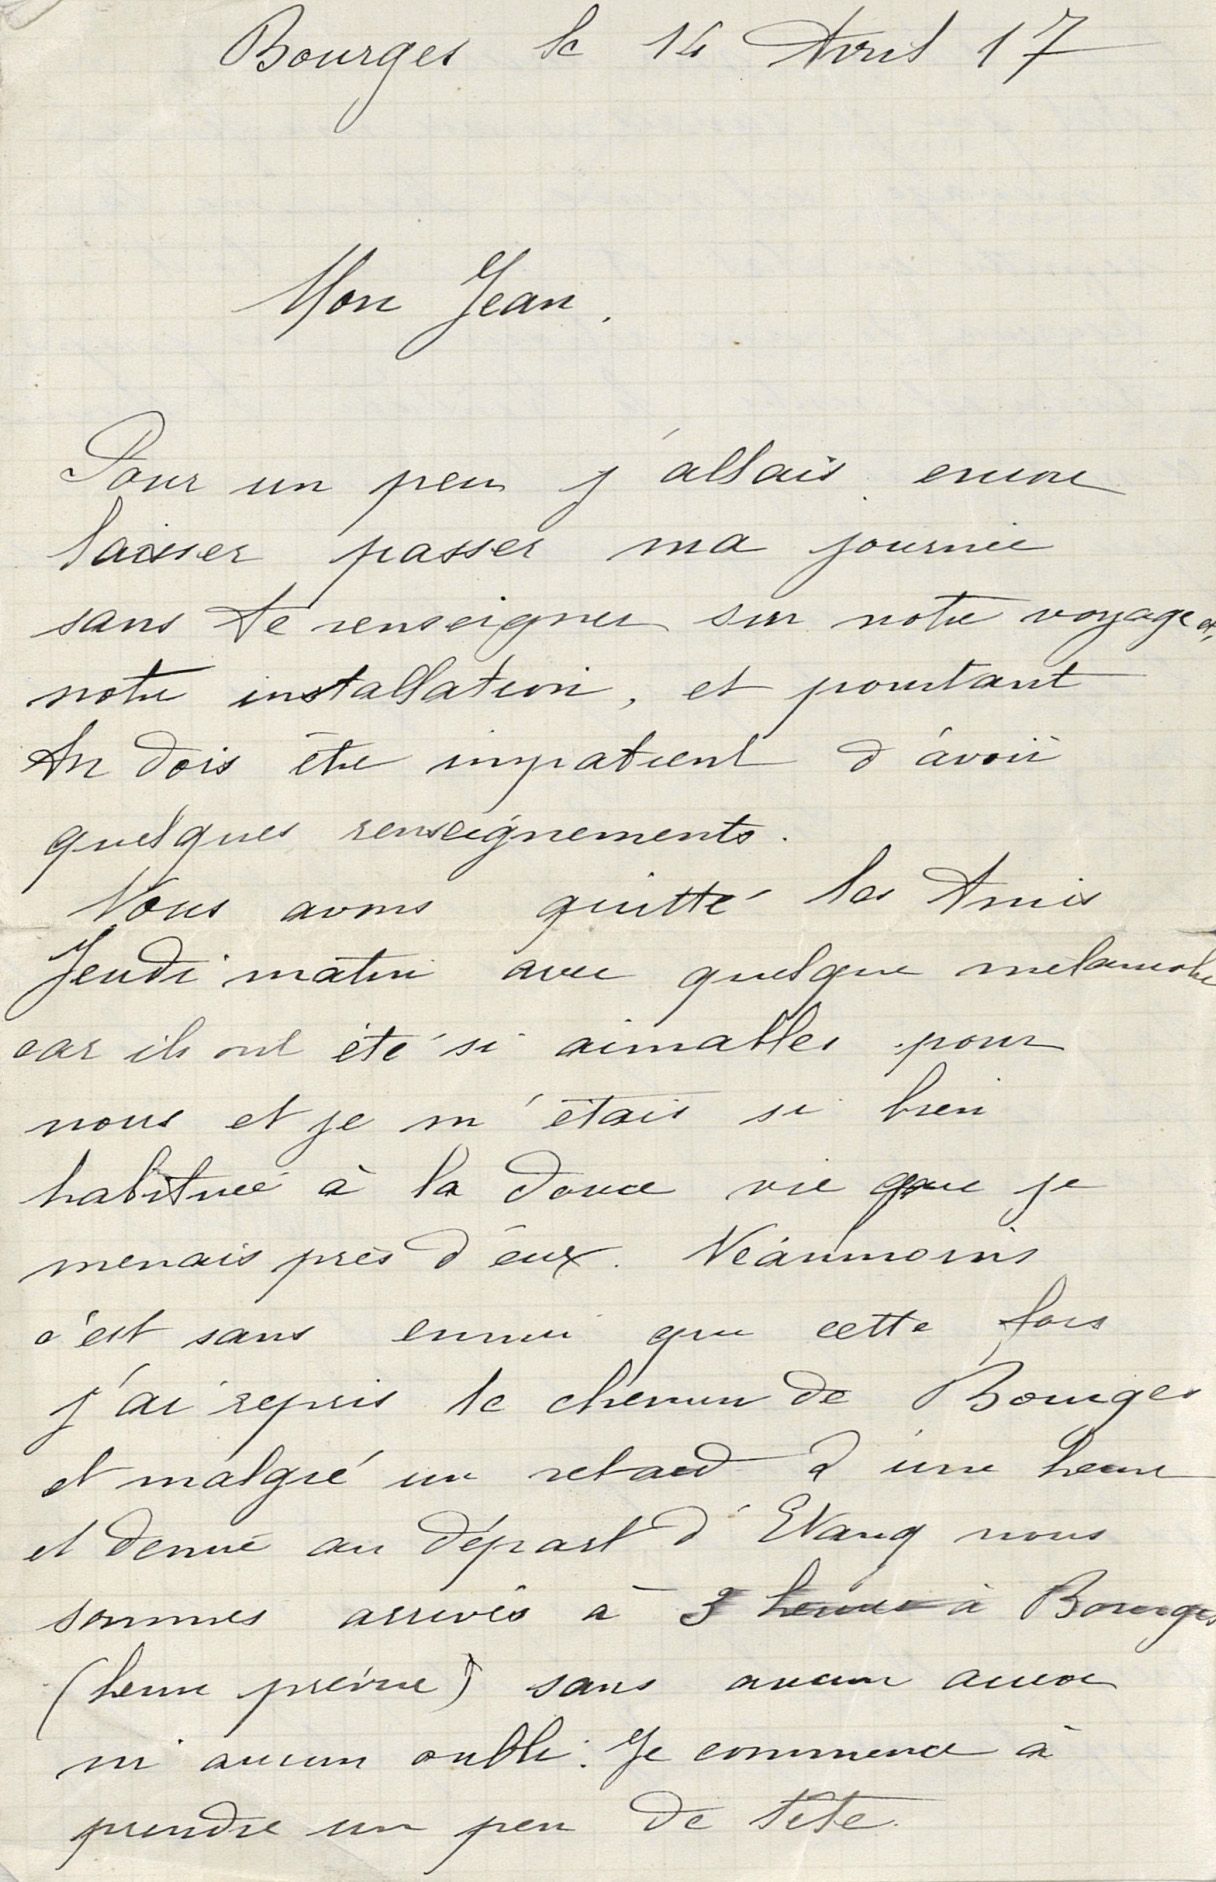 Bourges le 14 Avril 17
Mon Jean.
Pour un peu j'allais encore
laisser passer ma journée
sans te renseigner sur notre voyage et,
notre installation, et pourtant
tu dois être impatient d'avoir
quelques renseignements.
Nous avons quitté les Amis
Jeudi matin avec quelque mélancolie
car ils ont été si aimables pour
nous et je m'étais si bien
habituée à la douce vie que je
menais près d'eux. Néanmoins
c'est sans ennui que cette fois
j'ai repris le chemin de Bourges
et malgré un retard d'une heure
et demie au départ d' nous
sommes arrivés à 3 heures à Bourges
(heure prévue) sans aucun
ni aucun oubli. Je commence à
prendre un peu de tête.